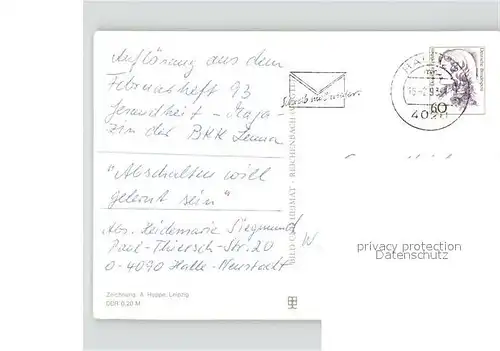 Auflösung aus dem
Februarheft 93
Gesundheit – Maga-
zin der BKK Leuna
"Abschalten will
gelernt sein"
Abs. Heidemarie Siegmund
Paul-Thiersch-Str. 20
O-4090 Halle-Neustadt
Zeichnung: A. Hoppe, Leipzig
DDR 0,20 M
BILD UND HEIMAT REICHENBACH
HALLE
4020
60
privacy protection
Datenschutz